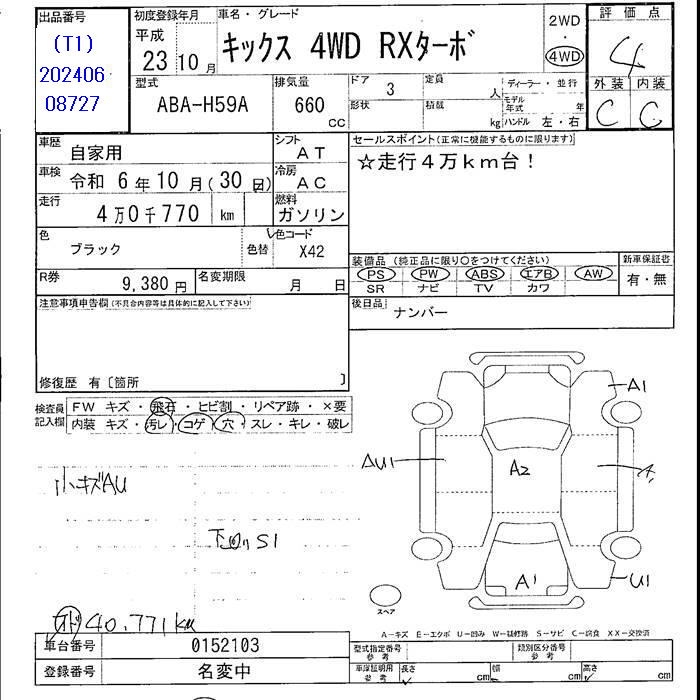 出品番号
(T1)
202406
08727
初度登録年月
平成
23 10月
車名・グレード
キックス 4WD RXターボ
2WD
・
4WD
評価点
4
外装 内装
C C
型式
ABA-H59A
排気量
660
CC
ドア
3
定員
人
形状
積載
kg
ディーラー・並行
モデル年式 年
ハンドル 左・右
車歴
自家用
シフト
AT
車検
令和 6年10月(30日)
冷房
AC
走行
4万0千770 km
燃料
ガソリン
色
ブラック
色替
色コード
X42
R券
9,380円
名変期限
月 日
セールスポイント(正常に機能するものに限ります)
☆走行4万km台!
装備品 (純正品に限り○をつけてください)
PS PW ABS エアB AW
SR ナビ TV カワ
新車保証書
有・無
後日品
ナンバー
注意事項申告欄(不具合内容等は具体的に記入して下さい)
修復歴 有〔箇所 〕
検査員記入欄
FW キズ・飛石・ヒビ割・リペア跡・×要
内装 キズ・汚レ・コゲ・穴・スレ・キレ・破レ
小キズAU
下回りS1
オド 40,771km
A1
AU1
A2
A
A1
U1
スペア
A-キズ E-エクボ U-凹み W-補修跡 S-サビ C-腐食 XX-交換済
車台番号
0152103
登録番号
名変中
型式指定番号
参考
類別区分番号
参考
車庫証明用
参考
長さ cm
幅 cm
高さ cm